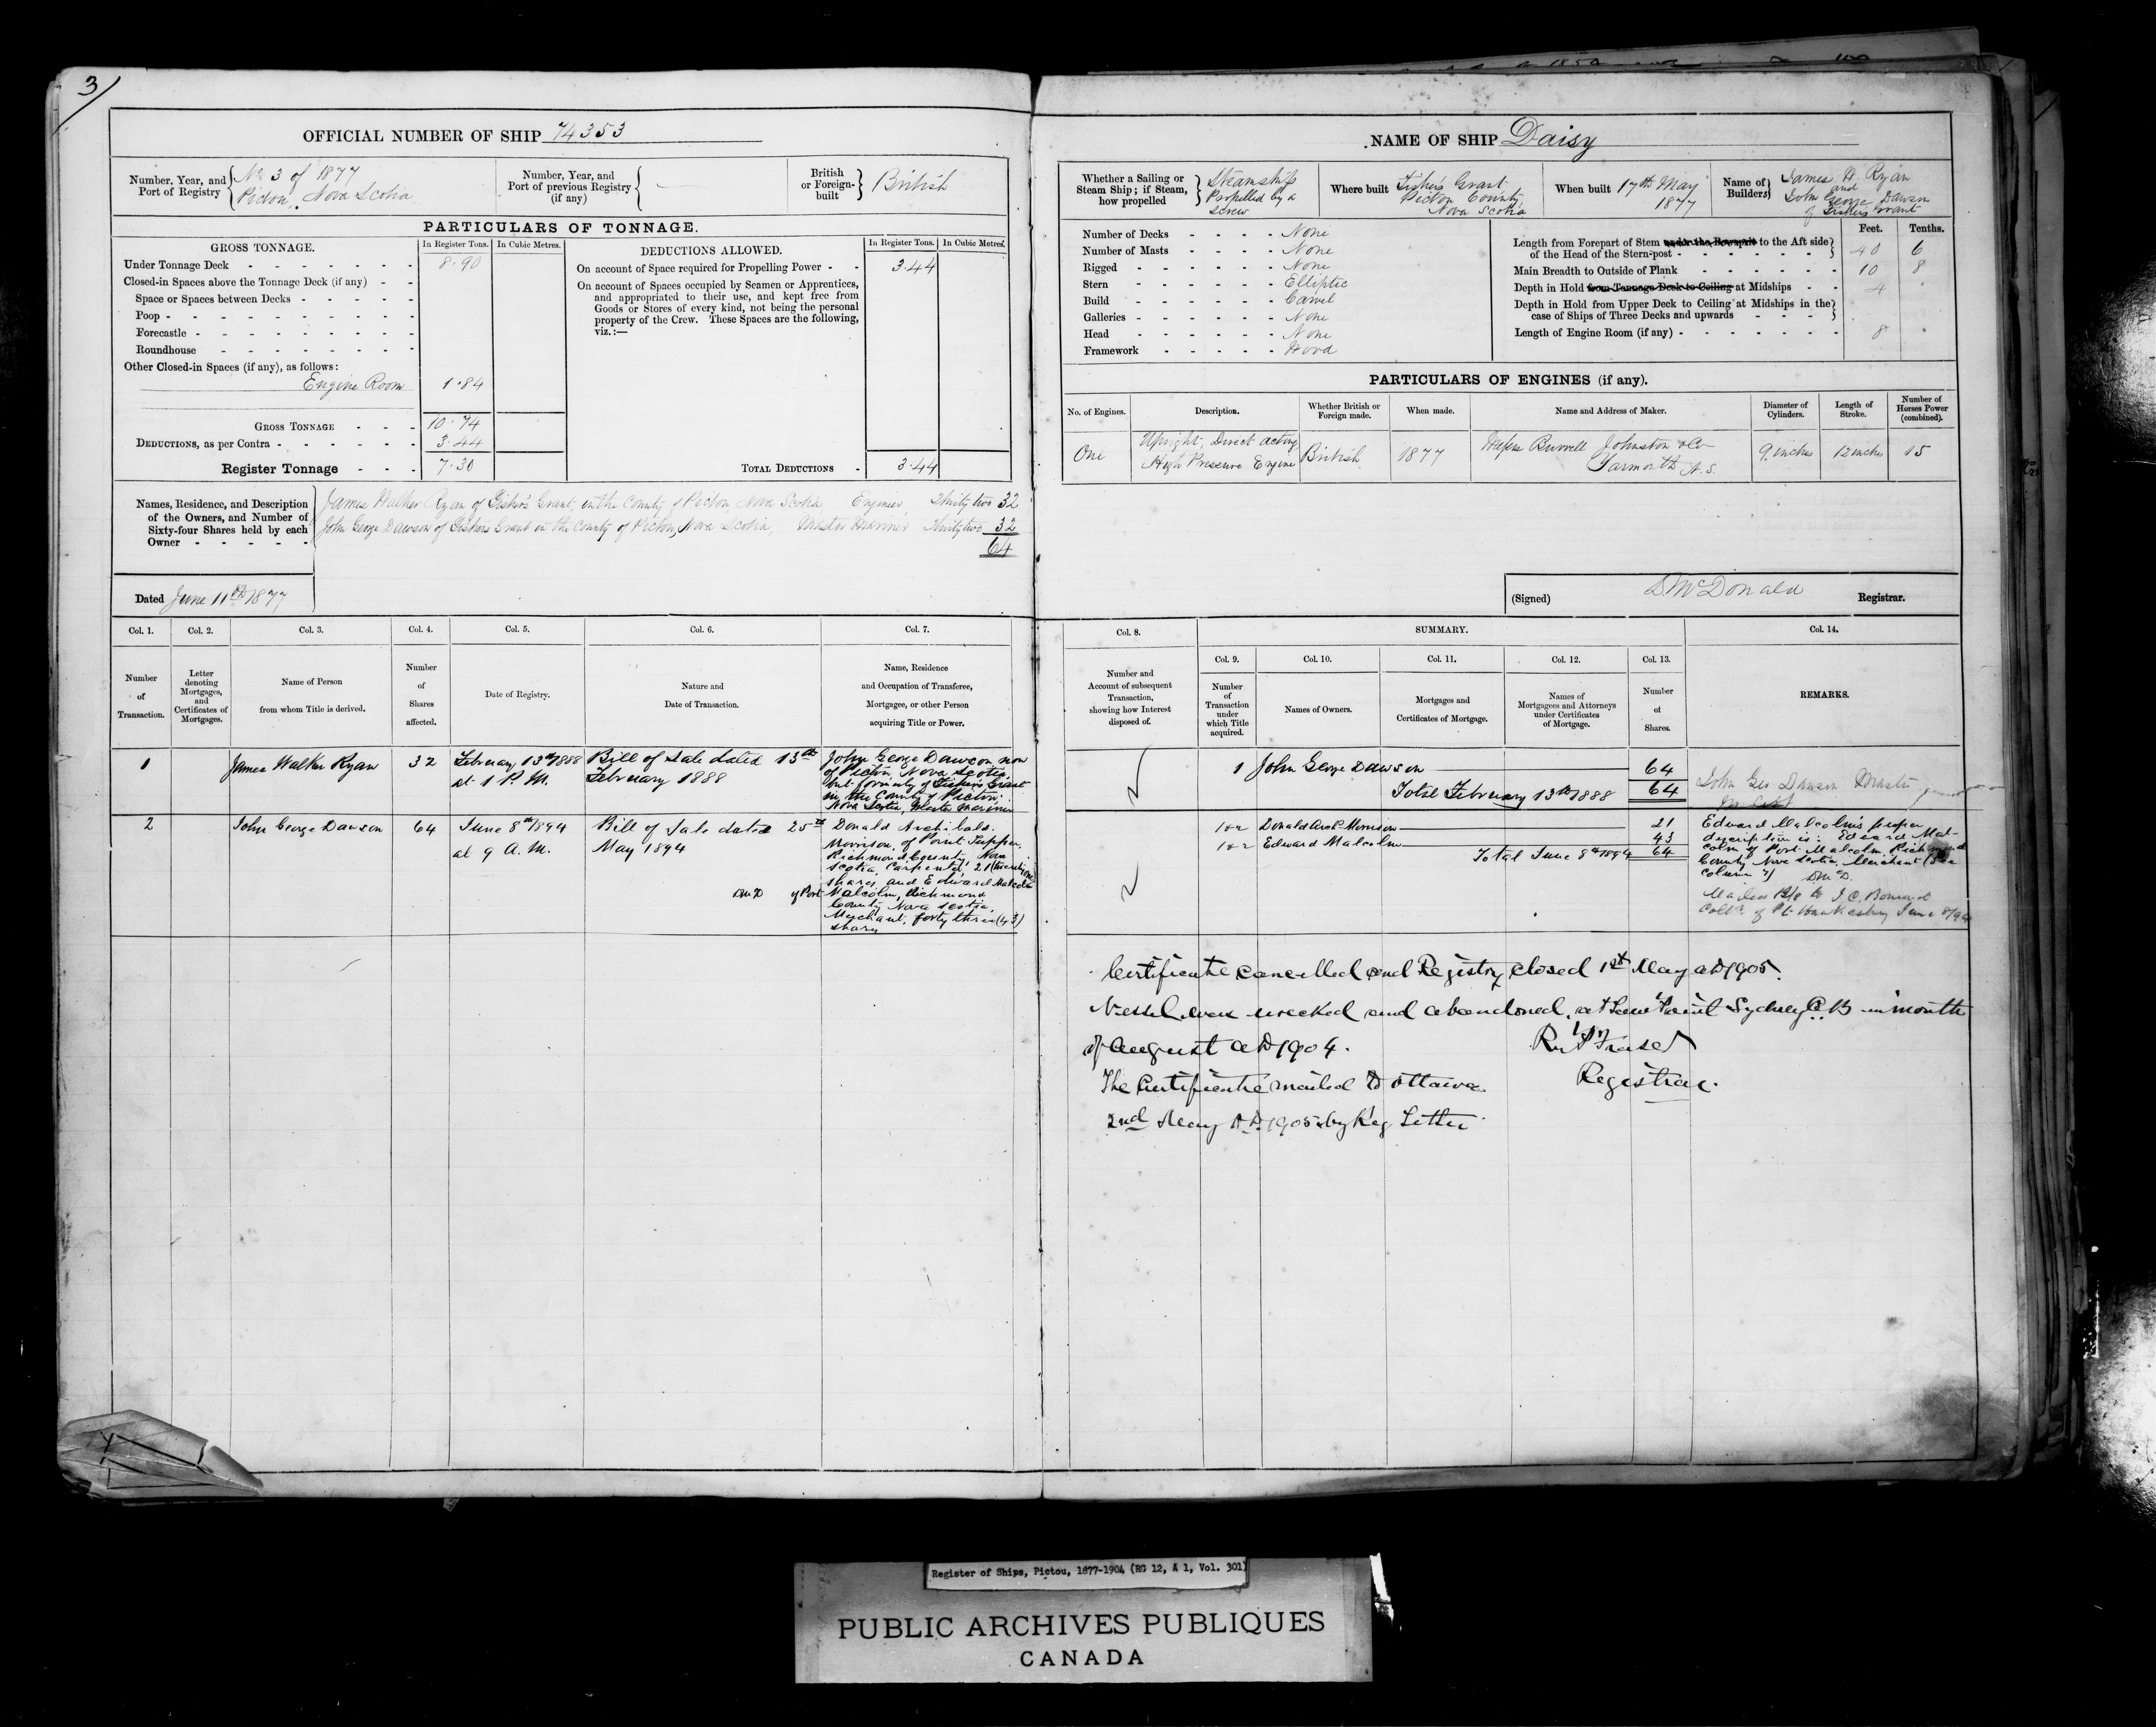 3/
OFFICIAL NUMBER OF SHIP 74353
Number, Year, and Port of Registry { No 3 of 1877 Pictou, Nova Scotia
Number, Year, and Port of previous Registry (if any) { —
British or Foreign-built } British
PARTICULARS OF TONNAGE.
GROSS TONNAGE. In Register Tons. In Cubic Metres.
Under Tonnage Deck - - - - - - - 8.90
Closed-in Spaces above the Tonnage Deck (if any) - -
Space or Spaces between Decks - - - - -
Poop - - - - - - - - - -
Forecastle - - - - - - - - -
Roundhouse - - - - - - - -
Other Closed-in Spaces (if any), as follows:
Engine Room 1.84
GROSS TONNAGE - - - 10.74
DEDUCTIONS, as per Contra - - - - - - 3.44
Register Tonnage - - - 7.30
DEDUCTIONS ALLOWED. In Register Tons. In Cubic Metres.
On account of Space required for Propelling Power - - 3.44
On account of Spaces occupied by Seamen or Apprentices,
and appropriated to their use, and kept free from
Goods or Stores of every kind, not being the personal
property of the Crew. These Spaces are the following,
viz.:—
TOTAL DEDUCTIONS - 3.44
Names, Residence, and Description
of the Owners, and Number of
Sixty-four Shares held by each
Owner - - - - -
James Walker Ryan of Fisher's Grant, in the County of Pictou Nova Scotia Engineer, Thirty two 32
John George Dawson of Fishers Grant in the County of Pictou, Nova Scotia, Master Mariner Thirty two 32
64
Dated June 11th 1877
Col. 1. Col. 2. Col. 3. Col. 4. Col. 5. Col. 6. Col. 7.
Number of Transaction.
Letter denoting Mortgages, and Certificates of Mortgages.
Name of Person from whom Title is derived.
Number of Shares affected.
Date of Registry.
Nature and Date of Transaction.
Name, Residence and Occupation of Transferee, Mortgagee, or other Person acquiring Title or Power.
1 James Walker Ryan 32
February 13th 1888
at 1 P.M.
Bill of Sale dated 13th
February 1888
John George Dawson now
of Pictou, Nova Scotia,
but formerly of Fishers Grant
in the County of Pictou
Nova Scotia, Master Mariner
2 John George Dawson 64
June 8th 1894
at 9 A.M.
Bill of Sale dated 25th
May 1894
Donald Archibald
Morrison, of Point Tupper,
Richmond County, Nova
Scotia, Carpenter, 21 (twenty one)
shares and Edward Malcolm
DMD of Port Malcolm, Richmond
County Nova Scotia,
Merchant, forty three (43)
shares
NAME OF SHIP Daisy
Whether a Sailing or Steam Ship; if Steam, how propelled } Steamship Propelled by a Screw
Where built Fisher's Grant Pictou County, Nova Scotia
When built 17th May 1877
Name of Builders } James W. Ryan and John George Dawson of Fishers Grant
Number of Decks - - - - None
Number of Masts - - - - None
Rigged - - - - - - None
Stern - - - - - - Elliptic
Build - - - - - - Carvel
Galleries - - - - - - None
Head - - - - - None
Framework - - - - - Wood
Feet. Tenths.
Length from Forepart of Stem under the Bowsprit to the Aft side
of the Head of the Stern-post - - - - - - } 40 6
Main Breadth to Outside of Plank - - - - - - 10 8
Depth in Hold from Tonnage Deck to Ceiling at Midships - - 4 "
Depth in Hold from Upper Deck to Ceiling at Midships in the
case of Ships of Three Decks and upwards - - - }
Length of Engine Room (if any) - - - - - - - 8 "
PARTICULARS OF ENGINES (if any).
No. of Engines. Description. Whether British or Foreign made. When made. Name and Address of Maker. Diameter of Cylinders. Length of Stroke. Number of Horses Power (combined).
One
Upright, Direct acting
High Pressure Engine
British 1877
Messrs Burrell Johnston & Co
Yarmouth N.S.
9 inches 12 inches 15
(Signed) D McDonald Registrar.
Col. 8. SUMMARY. Col. 14.
Col. 9. Col. 10. Col. 11. Col. 12. Col. 13.
Number and Account of subsequent Transaction, showing how Interest disposed of.
Number of Transaction under which Title acquired.
Names of Owners.
Mortgages and Certificates of Mortgage.
Names of Mortgagees and Attorneys under Certificates of Mortgage.
Number of Shares.
REMARKS.
1 John George Dawson 64
Total February 13th 1888 64
John Geo Dawson Master
1 & 2 Donald Archd Morrison 21
1 & 2 Edward Malcolm 43
Total June 8th 1894 64
Edward Malcolm's proper
description is: Edward Mal-
colm of Port Malcolm Richmond
County Nova Scotia, Merchant (See
column 7) DMcD.
Mailed B/S to J C Bourinot
Collr. of Pt Hawkesbury June 8/94
Certificate cancelled and Registry closed 1st May AD 1905.
Vessel was wrecked and abandoned, at Point Sydney C.B in month
of August AD 1904.
Fraser
Registrar.
The Certificate mailed to Ottawa
2nd May AD 1905 by Reg Letter
Register of Ships, Pictou, 1877-1904 (RG 12, A 1, Vol. 301)
PUBLIC ARCHIVES PUBLIQUES
CANADA